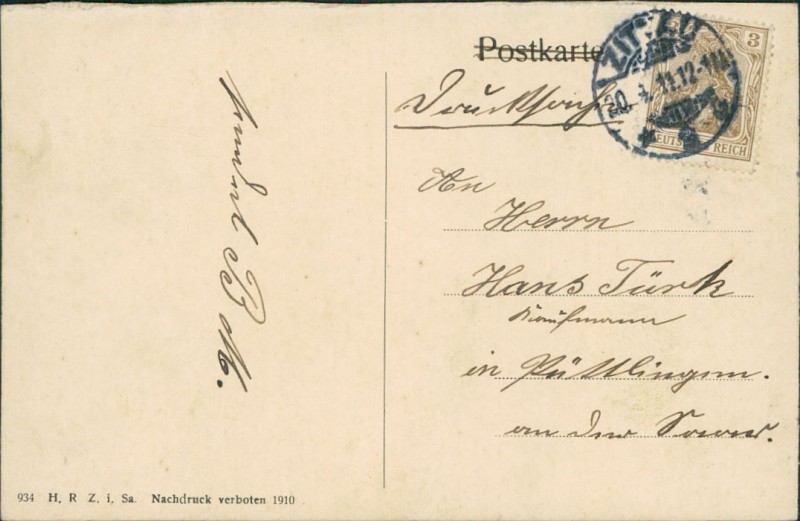 Postkarte
Drucksache
ZITTAU
20. 4. 11. 12-1N
3
DEUTSCHES REICH
An
Herrn
Hans Türk
Kaufmann
in Püttlingen.
an der Saar.
sendet B M.
934 H. R Z. i. Sa. Nachdruck verboten 1910